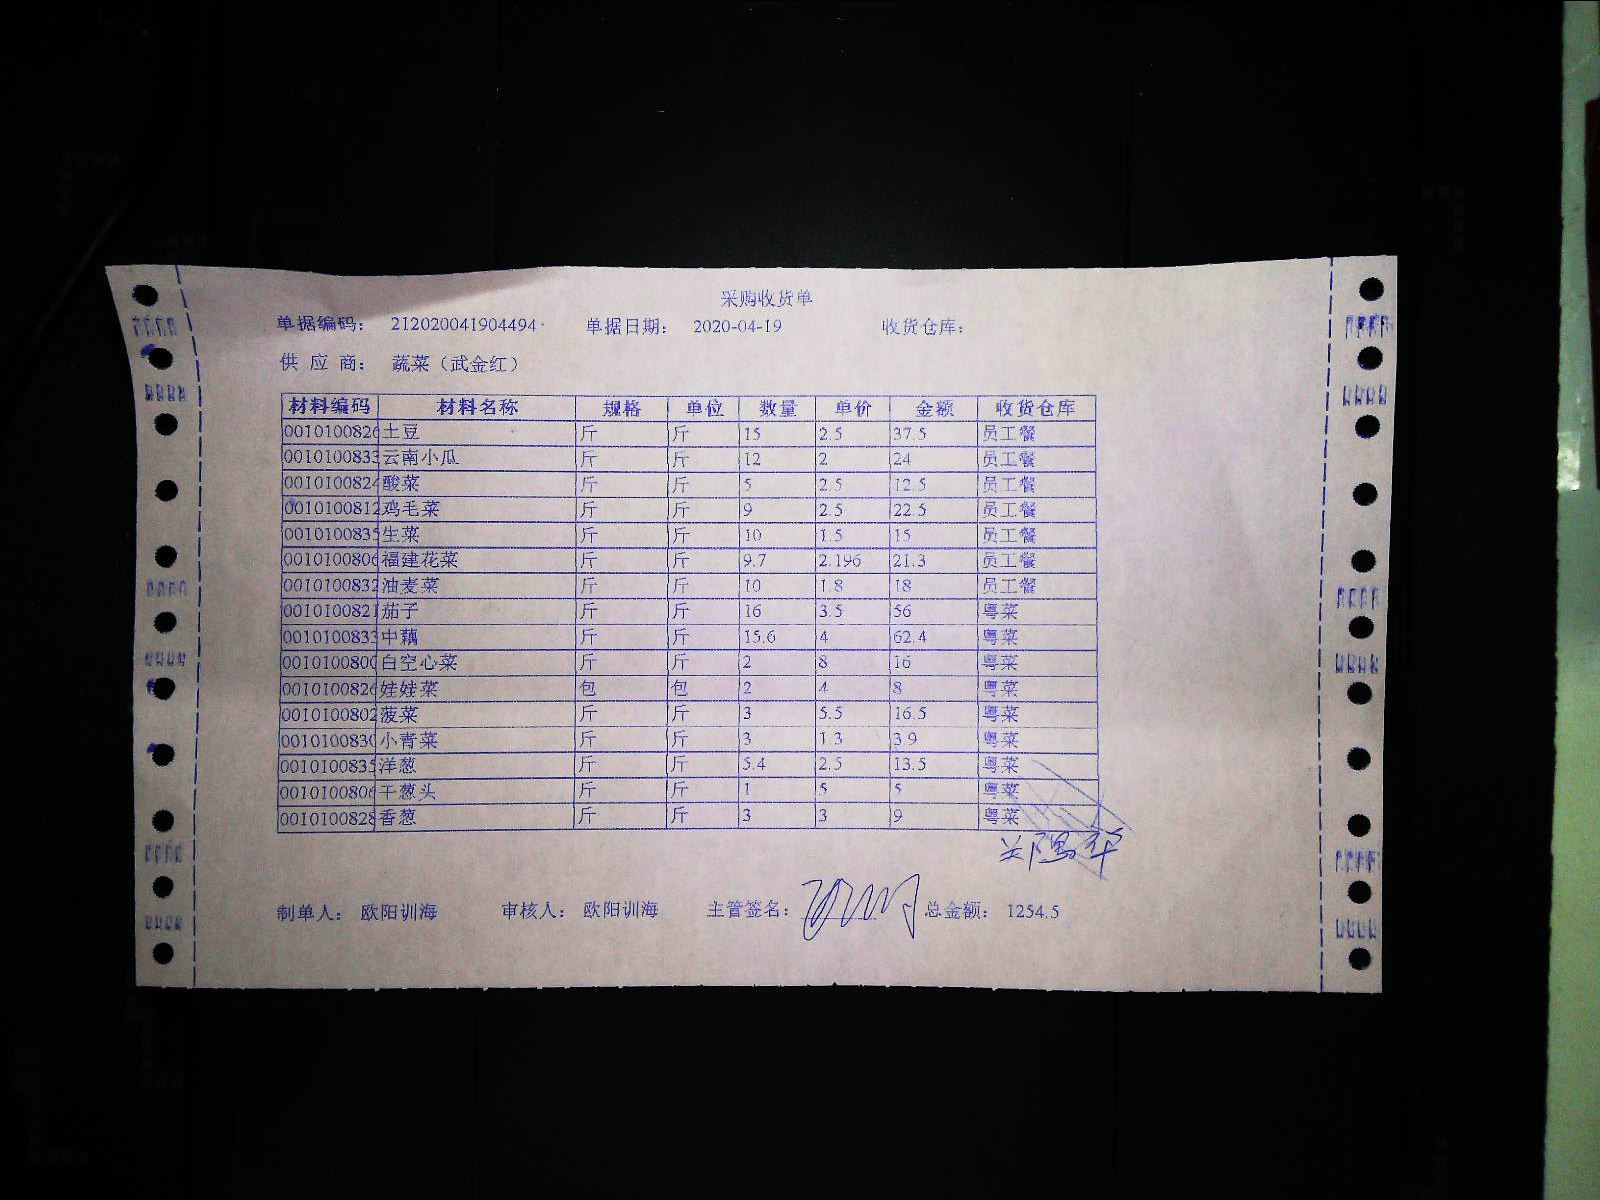 采购收货单
单据编码： 212020041904494 单据日期： 2020-04-19 收货仓库：
供 应 商： 蔬菜（武金红）
材料编码 材料名称 规格 单位 数量 单价 金额 收货仓库
0010100826 土豆 斤 斤 15 2.5 37.5 员工餐
0010100833 云南小瓜 斤 斤 12 2 24 员工餐
0010100824 酸菜 斤 斤 5 2.5 12.5 员工餐
0010100812 鸡毛菜 斤 斤 9 2.5 22.5 员工餐
0010100835 生菜 斤 斤 10 1.5 15 员工餐
0010100806 福建花菜 斤 斤 9.7 2.196 21.3 员工餐
0010100832 油麦菜 斤 斤 10 1.8 18 员工餐
0010100821 茄子 斤 斤 16 3.5 56 粤菜
0010100833 中藕 斤 斤 15.6 4 62.4 粤菜
0010100800 白空心菜 斤 斤 2 8 16 粤菜
0010100826 娃娃菜 包 包 2 4 8 粤菜
0010100802 菠菜 斤 斤 3 5.5 16.5 粤菜
0010100830 小青菜 斤 斤 3 1.3 3.9 粤菜
0010100835 洋葱 斤 斤 5.4 2.5 13.5 粤菜
0010100806 干葱头 斤 斤 1 5 5 粤菜
0010100828 香葱 斤 斤 3 3 9 粤菜
制单人： 欧阳训海 审核人： 欧阳训海 主管签名： 总金额： 1254.5